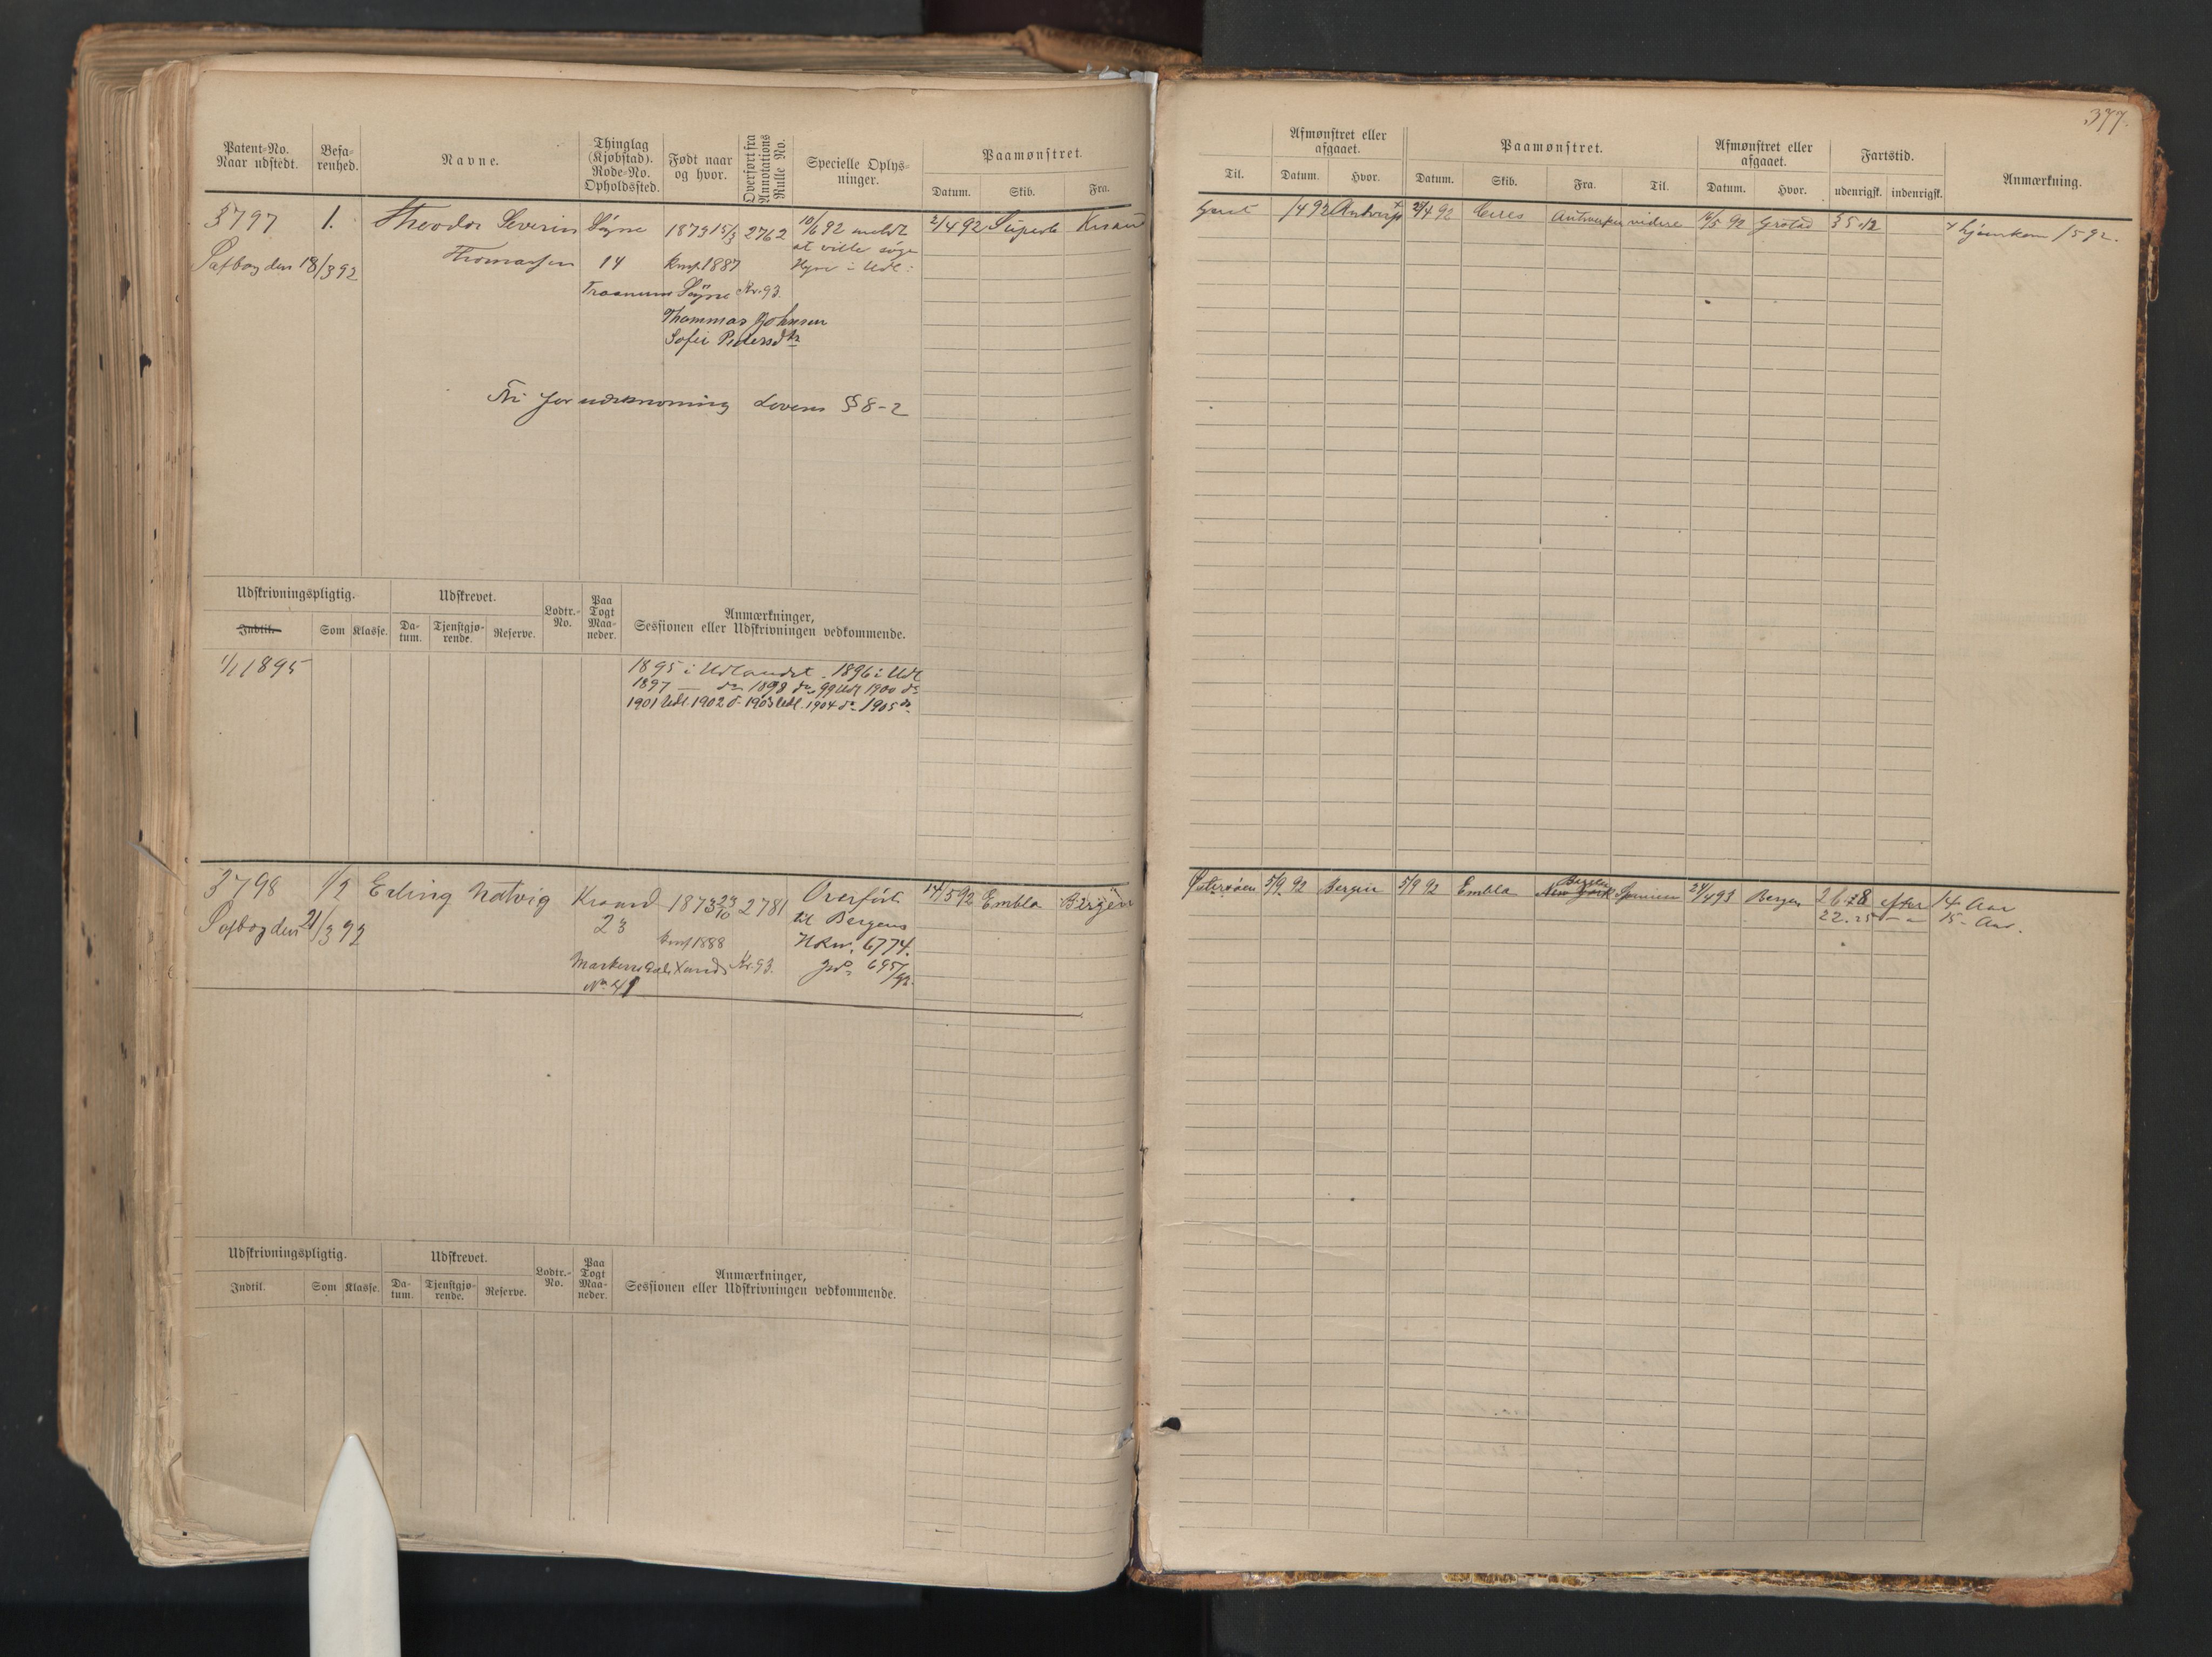 377.
Patent-No. Naar udstedt.
Befarenhed.
Navne.
Thinglag (Kjøbstad). Rode-No. Opholdssted.
Født naar og hvor.
Overført fra Annotations Rulle No.
Specielle Oplysninger.
Paamønstret.
Datum. Skib. Fra.
Til.
Afmønstret eller afgaaet.
Datum. Hvor.
Paamønstret.
Datum. Skib. Fra. Til.
Afmønstret eller afgaaet.
Datum. Hvor.
Fartstid.
udenrigsk. indenrigsk.
Anmærkning.
3797 1. Theodor Severin Søgne 1873 15/3 2762 10/6 92 meldt 2/4 92 Krsand
at ville søge
Søfbog den 18/3 92 Thomassen 14 Kmf. 1887 Hyre i Udl:
Søgne Kr. 93.
Thommas Johnsen
Sofie Pedersdtr
/4 92 Antwerp 2/4 92 Ceres Antwerpen videre 16/5 92 Hjemkom /5 92.
Fri for udskrivning Lovens § 8-2
Udskrivningspligtig. Udskrevet. Lodtr.-No. Paa Togt Maaneder. Anmærkninger, Sessionen eller Udskrivningen vedkommende.
Indtil. Som Klasse. Datum. Tjenstgjørende. Reserve.
1/1 1895 1895 i Udlandet. 1896 i Udl
1897 — do 1898 do 99 Udl 1900 do
1901 Udl. 1902 do 1903 Udl. 1904 do 1905 do
3798 1/2 Erling Natvig Krsand 1873 23/10 2781 Overført 14/5 92 Embla Bergen
23 til Bergens
Søfbog den 21/3 92 Kmf 1888 6774.
Markens Gade Xsand Kr. 93. 695/92.
No. 41
5/9 92 Bergen 5/9 92 Embla Bergen New York 24/4 93 Bergen 26.28 efter 14 Aar
22.25 — 15 - Aar.
Udskrivningspligtig. Udskrevet. Lodtr.-No. Paa Togt Maaneder. Anmærkninger, Sessionen eller Udskrivningen vedkommende.
Indtil. Som Klasse. Datum. Tjenstgjørende. Reserve.